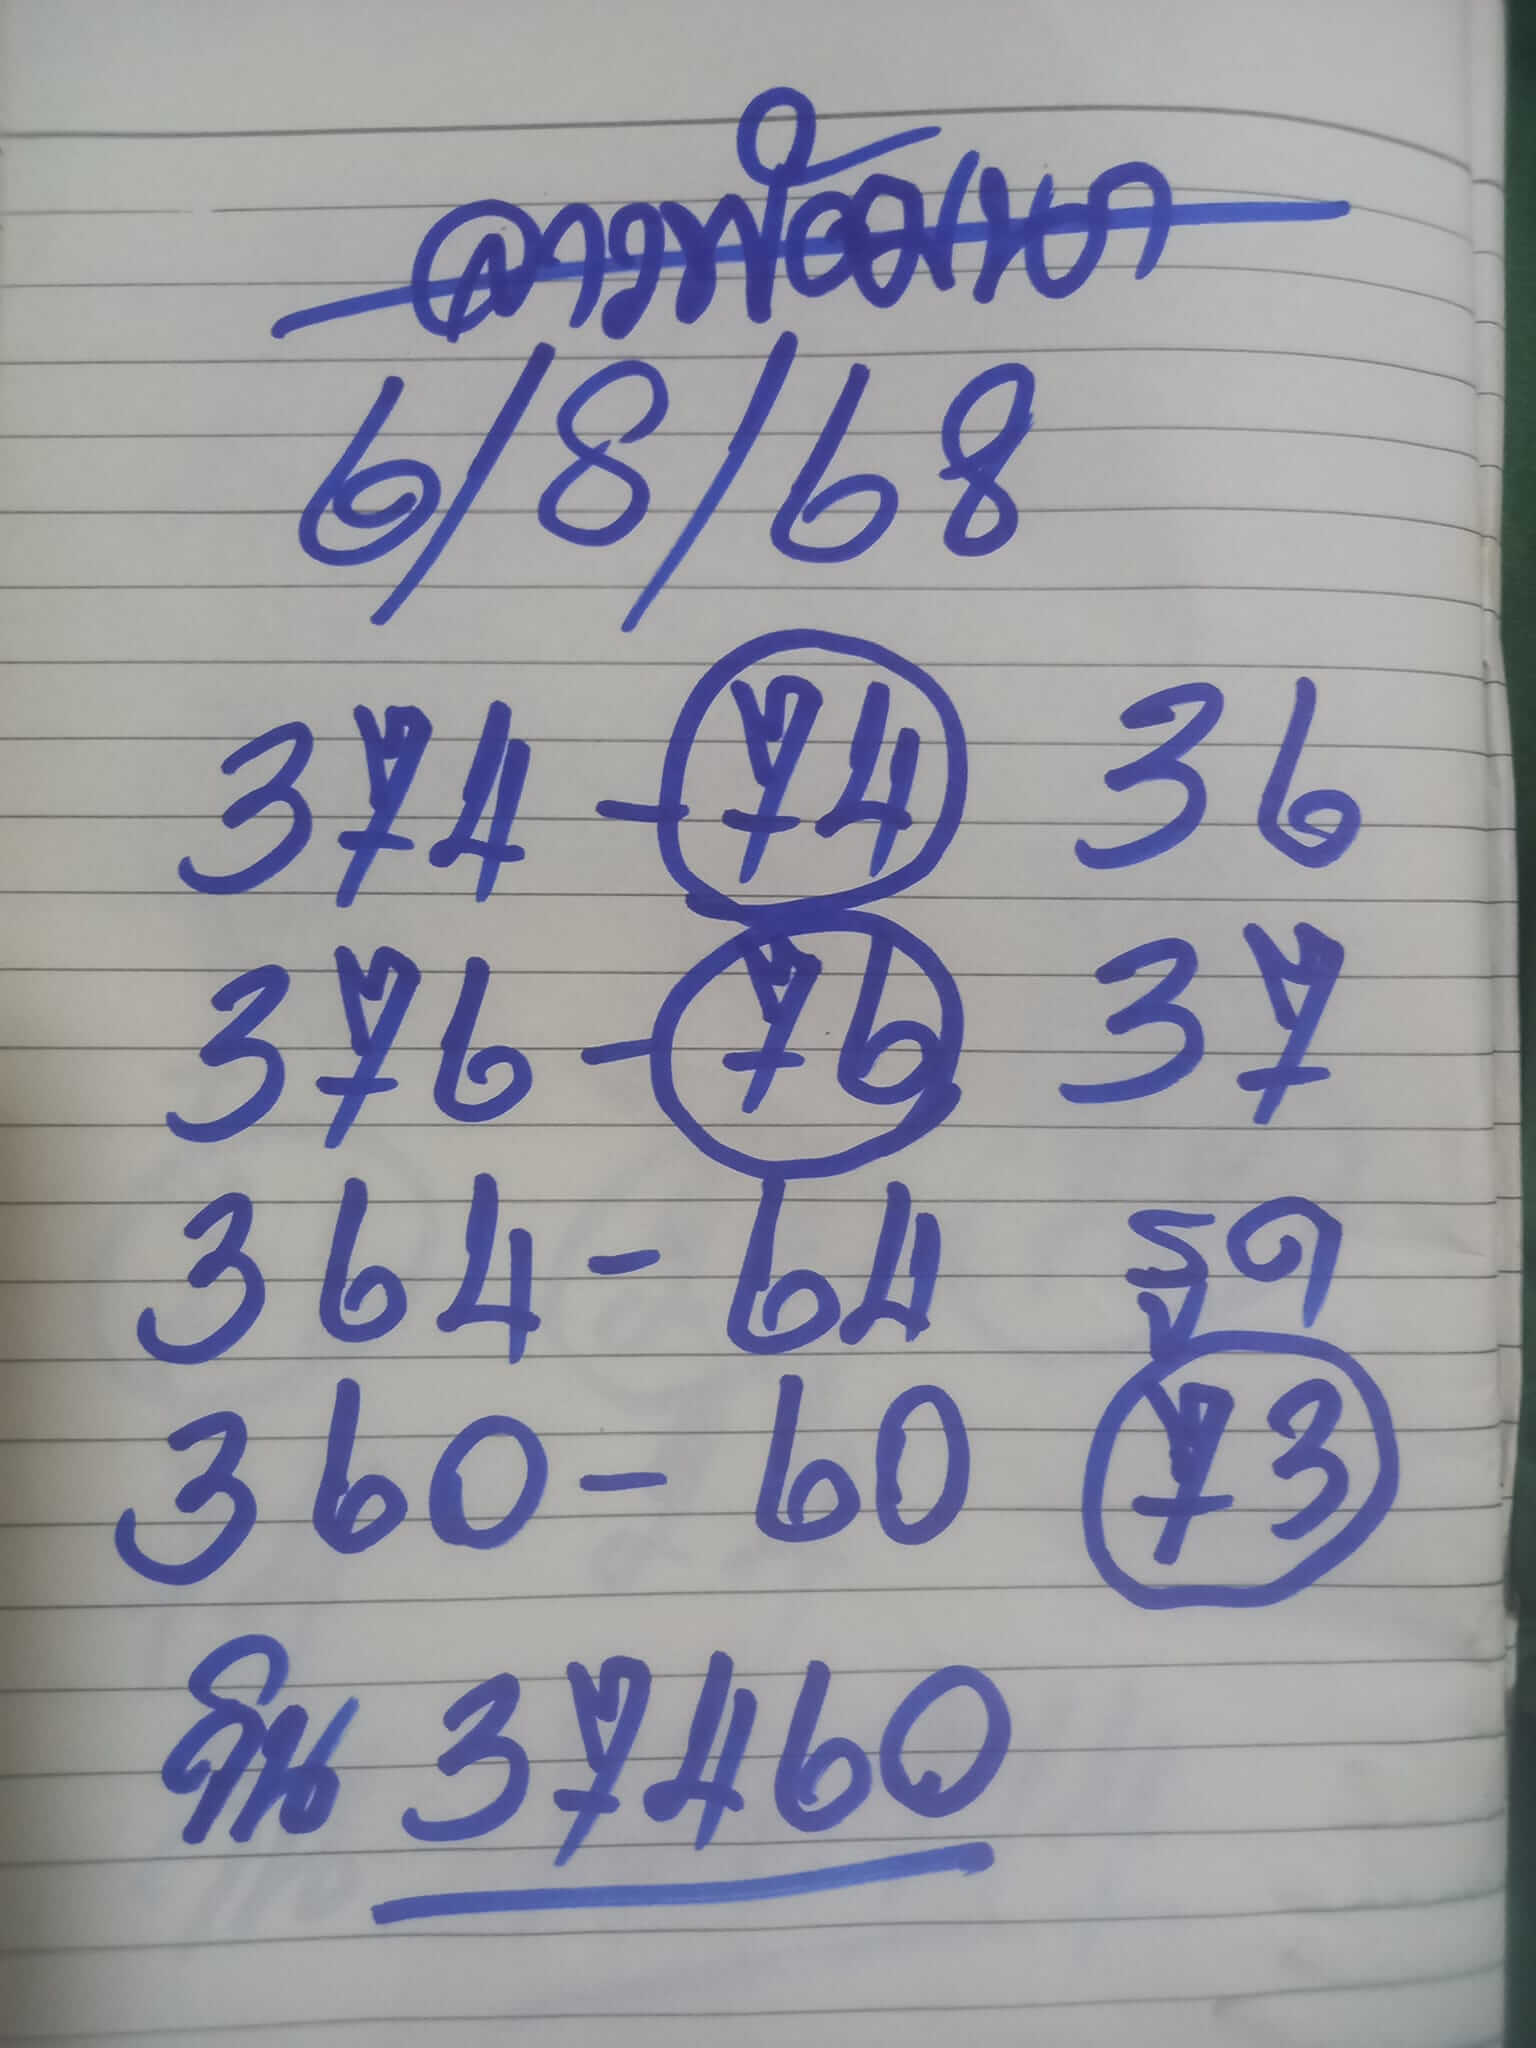 ลาวพัฒนา
6/8/68
374 - 74 36
376 - 76 37
364 - 64 รูด
360 - 60 73
วิน 37460